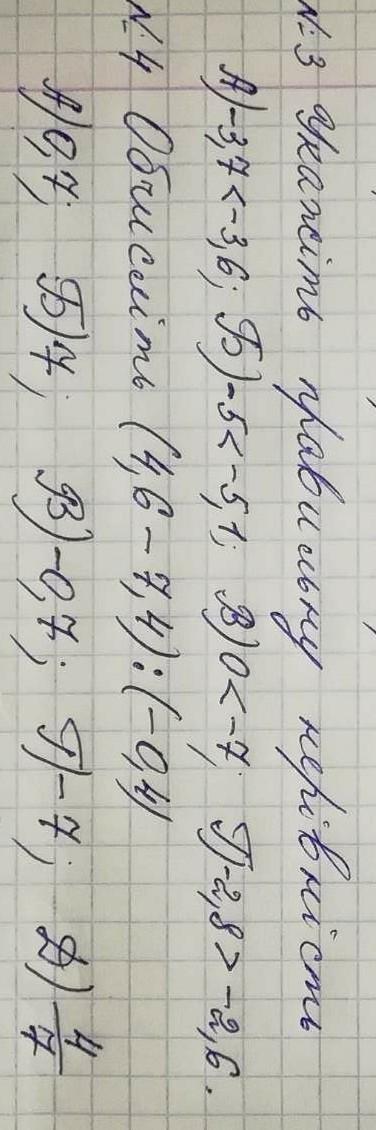 №3 Укажіть правильну нерівність
А) -3,7 < -3,6; Б) -5 < -5,1; В) 0 < -7; Г) -2,8 > -2,6.
№4 Обчисліть (4,6 - 7,4) : (-0,4)
А) 0,7; Б) 7; В) -0,7; Г) -7; Д) 4/7